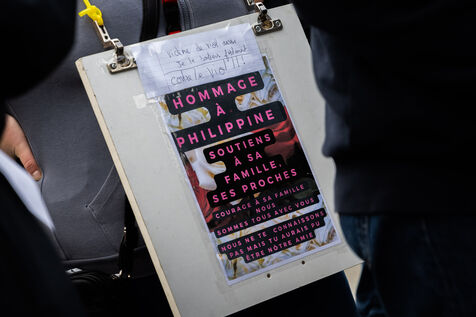 victime de viol aussi
je te soutiens
contre le viol !!!
HOMMAGE
À
PHILIPPINE
SOUTIENS
À SA
FAMILLE,
SES PROCHES
COURAGE À SA FAMILLE
NOUS
SOMMES TOUS AVEC VOUS
NOUS NE TE CONNAISSONS
PAS MAIS TU AURAIS PU
ÊTRE NÔTRE AMIE